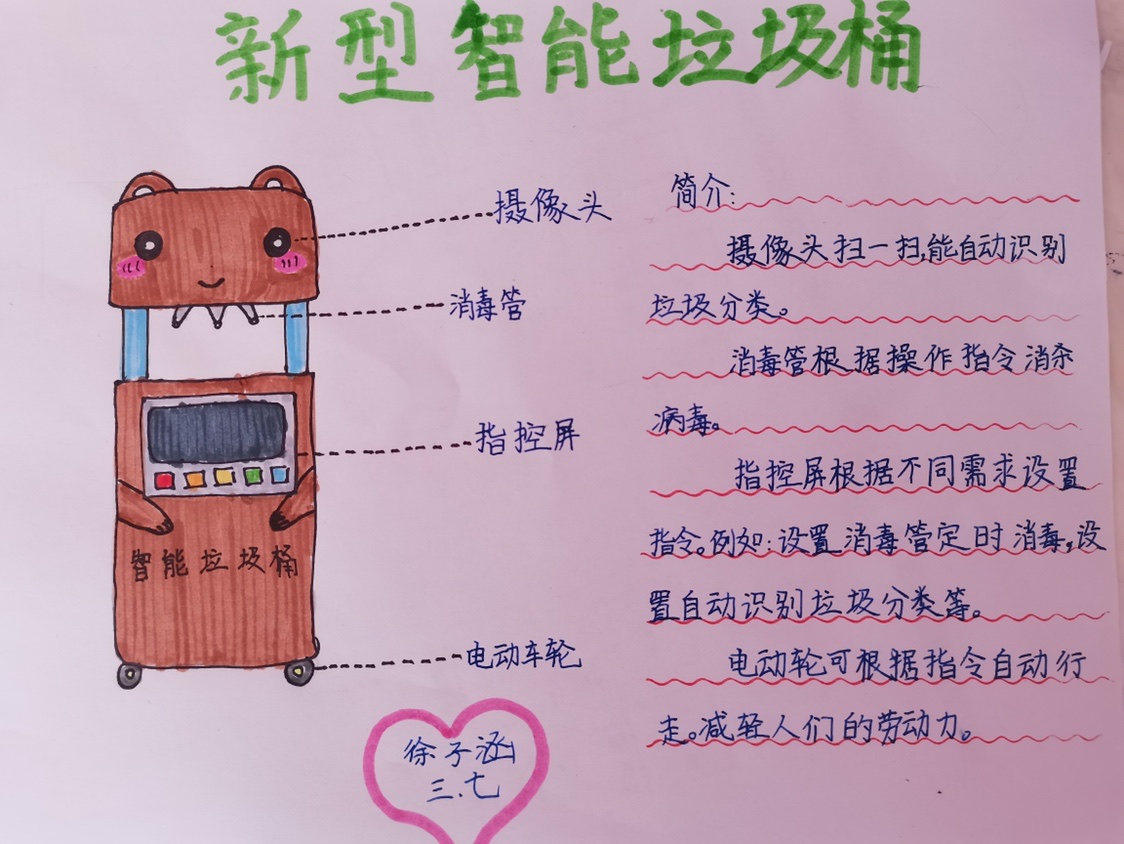 新型智能垃圾桶
摄像头
消毒管
指控屏
智能垃圾桶
电动车轮
徐子涵
三.七
简介:
摄像头扫一扫,能自动识别
垃圾分类。
消毒管根据操作指令消杀
病毒。
指控屏根据不同需求设置
指令。例如:设置消毒管定时消毒,设
置自动识别垃圾分类等。
电动轮可根据指令自动行
走。减轻人们的劳动力。